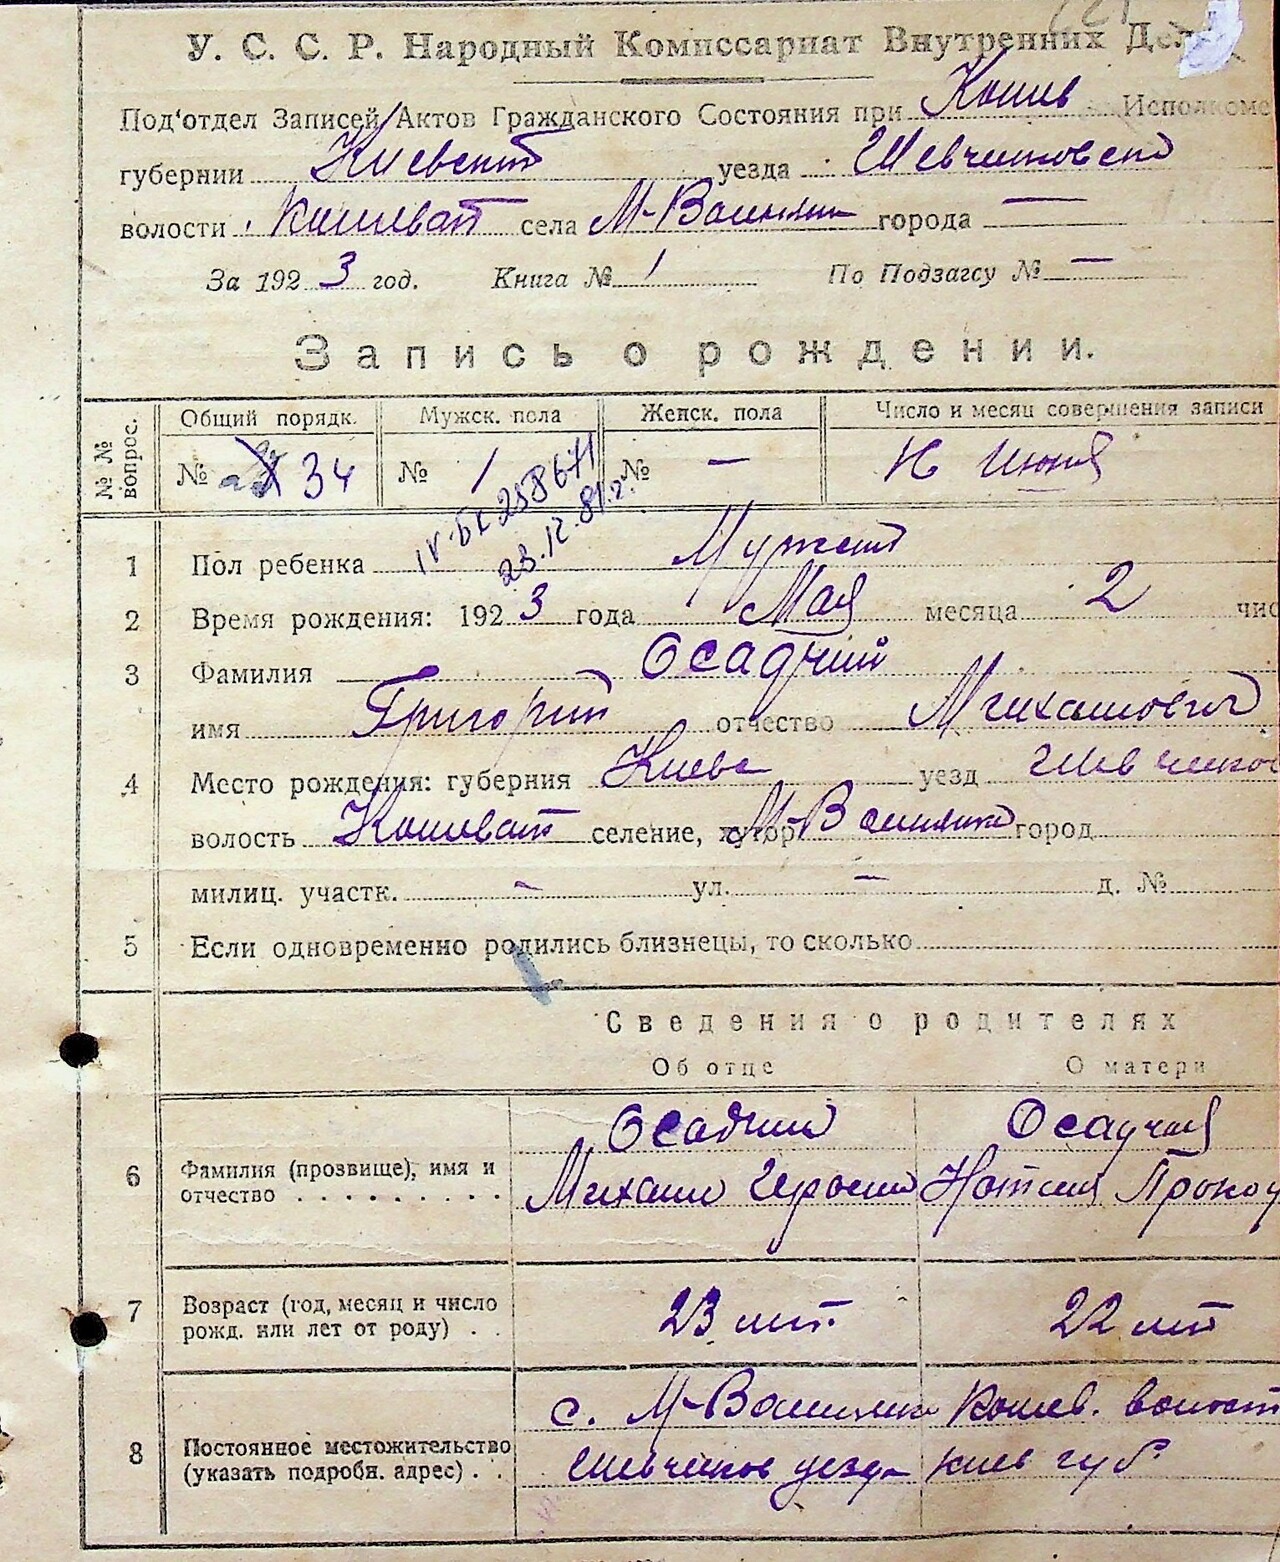 У. С. С. Р. Народный Комиссариат Внутренних Дел
Под‘отдел Записей Актов Гражданского Состояния при Кошев Исполкоме
губернии Киевск уезда Шевченковско
волости Кошеват села города —
За 1923 год. Книга № 1 По Подзагсу № —
Запись о рождении.
№№ вопрос. Общий порядк. Мужск. пола Женск. пола Число и месяц совершения записи
№ 34 № 1 № — Июня
258671
23.12.81г.
1 Пол ребенка Мужск
2 Время рождения: 1923 года Мая месяца 2 чис
3 Фамилия Осадчий
имя Григорий отчество Михайлович
4 Место рождения: губерния Киевс уезд Шевченков
волость Кошеват селение, хутор город
милиц. участк. — ул. — д. №
5 Если одновременно родились близнецы, то сколько
Сведения о родителях
Об отце О матери
Осадчий Осадчая
6 Фамилия (прозвище), имя и отчество . . . . . . . . . . Михаил Герасим Наталия Прокоп
7 Возраст (год, месяц и число рожд. или лет от роду) . . 23 лет. 22 лет
с. Кошев. волост
8 Постоянное местожительство (указать подробн. адрес) . . Шевченков уезда Киев губ